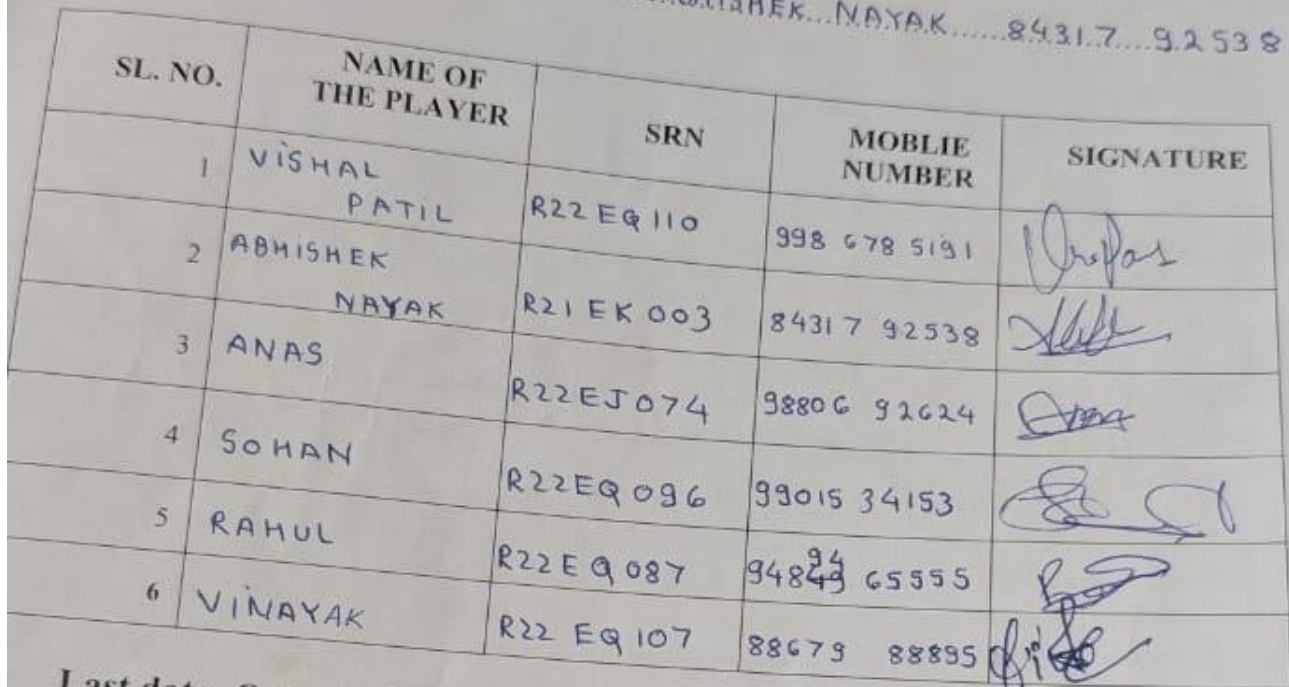 NAYAK......84317....92538
SL. NO. NAME OF THE PLAYER SRN MOBLIE NUMBER SIGNATURE
1 VISHAL PATIL R22EQ110 998 678 5191
2 ABHISHEK NAYAK R21EK003 84317 92538
3 ANAS R22EJ074 98806 92624
4 SOHAN R22EQ096 99015 34153
5 RAHUL R22EQ087 65555
6 VINAYAK R22EQ107 88679 88895
Last date